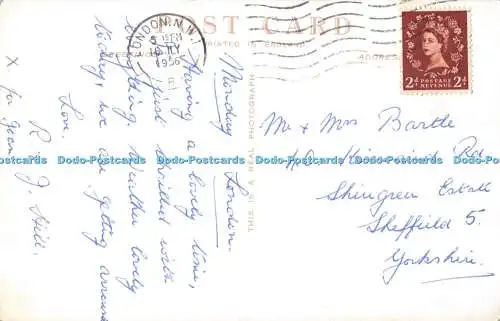 POST CARD
PRINTED IN ENGLAND
ADDRESS
THIS IS A REAL PHOTOGRAPH
LONDON. N.W.
5 15 PM
JLY
1956
2d POSTAGE REVENUE 2d
Monday London.
Having a lovely time,
just thrilled with
everything. Weather lovely
today, we are getting around
Love.
R J. Hill.
X for Jean
Mr & Mrs Bartle
Rd
Shirgreen Estate
Sheffield 5.
Yorkshire.
Dodo-Postcards Dodo-Postcards Dodo-Postcards Dodo-Postcards Dodo-Postcards
Dodo-Postcards Dodo-Postcards Dodo-Postcards Dodo-Postcards Dodo-Postcards